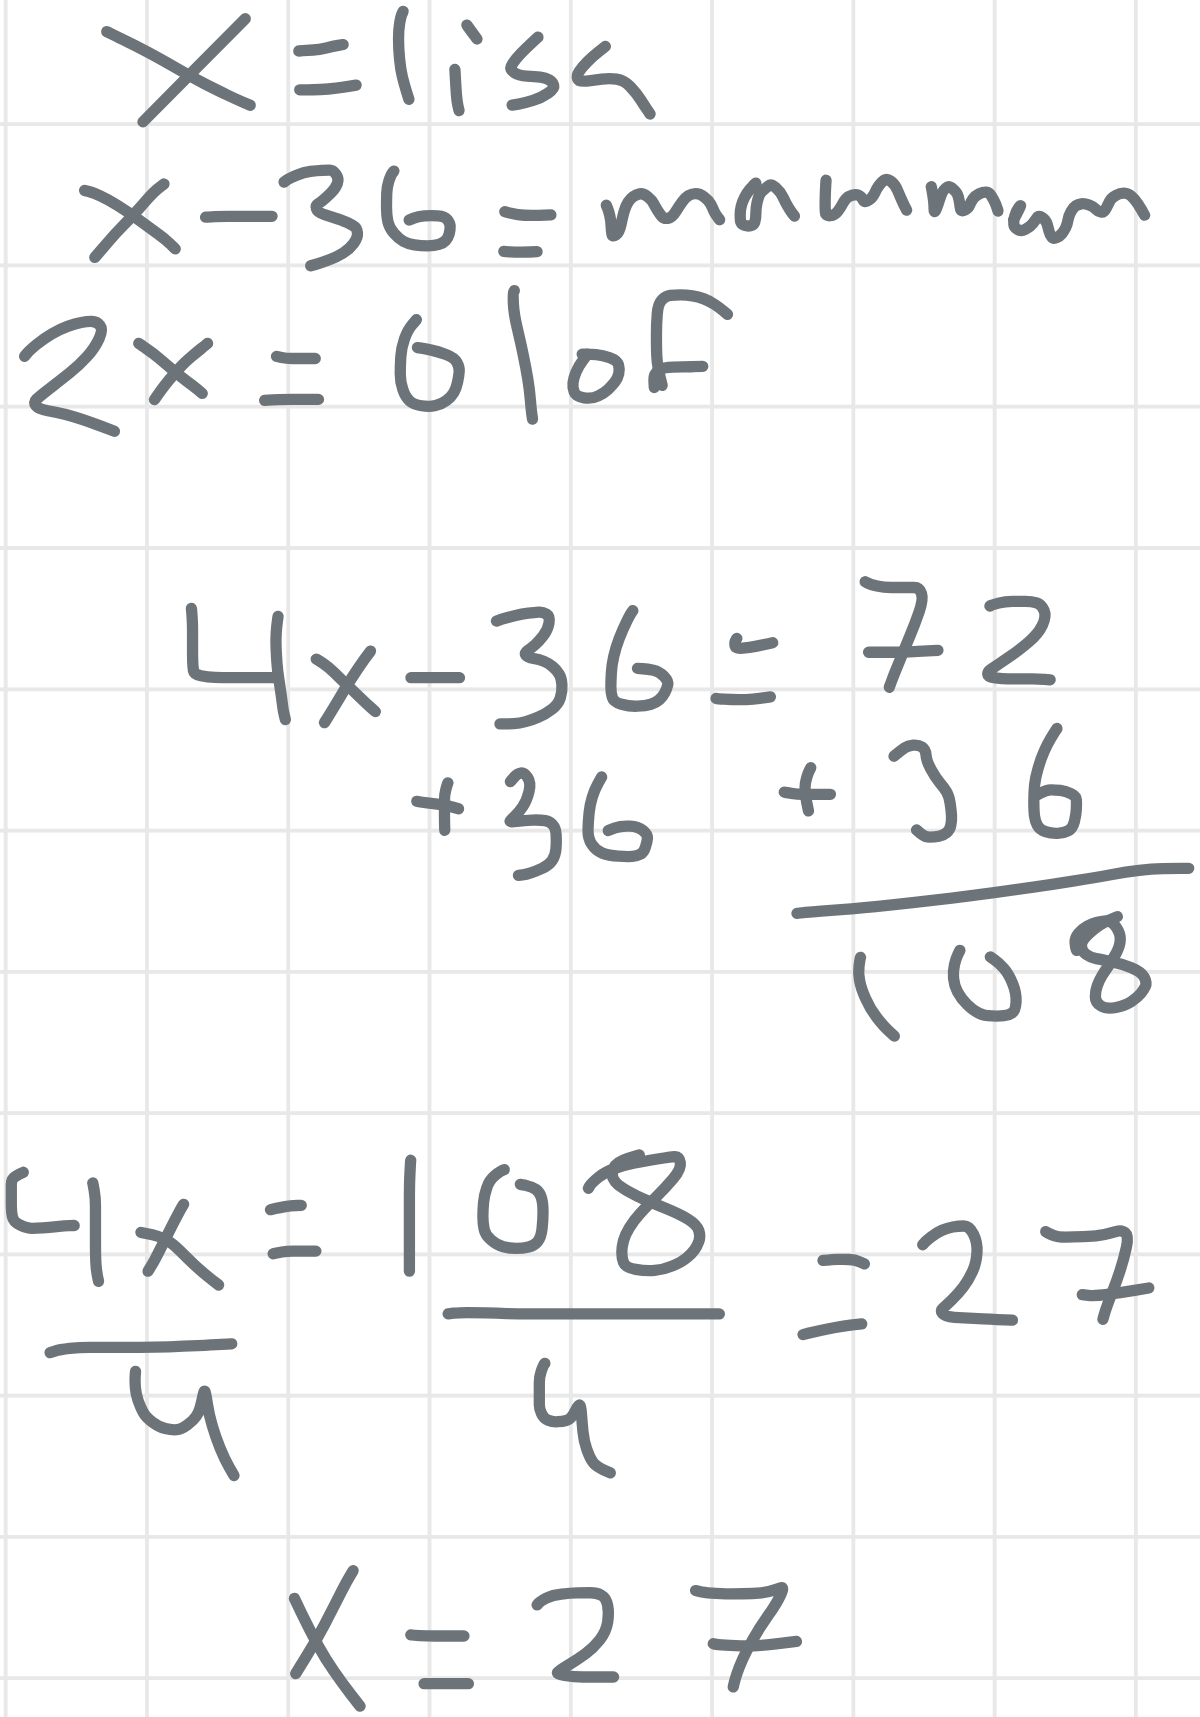 x = lisa
x - 36 = mamman
2x = olof
4x - 36 = 72
+ 36 + 36
108
4x = 108 = 27
4 4
x = 27